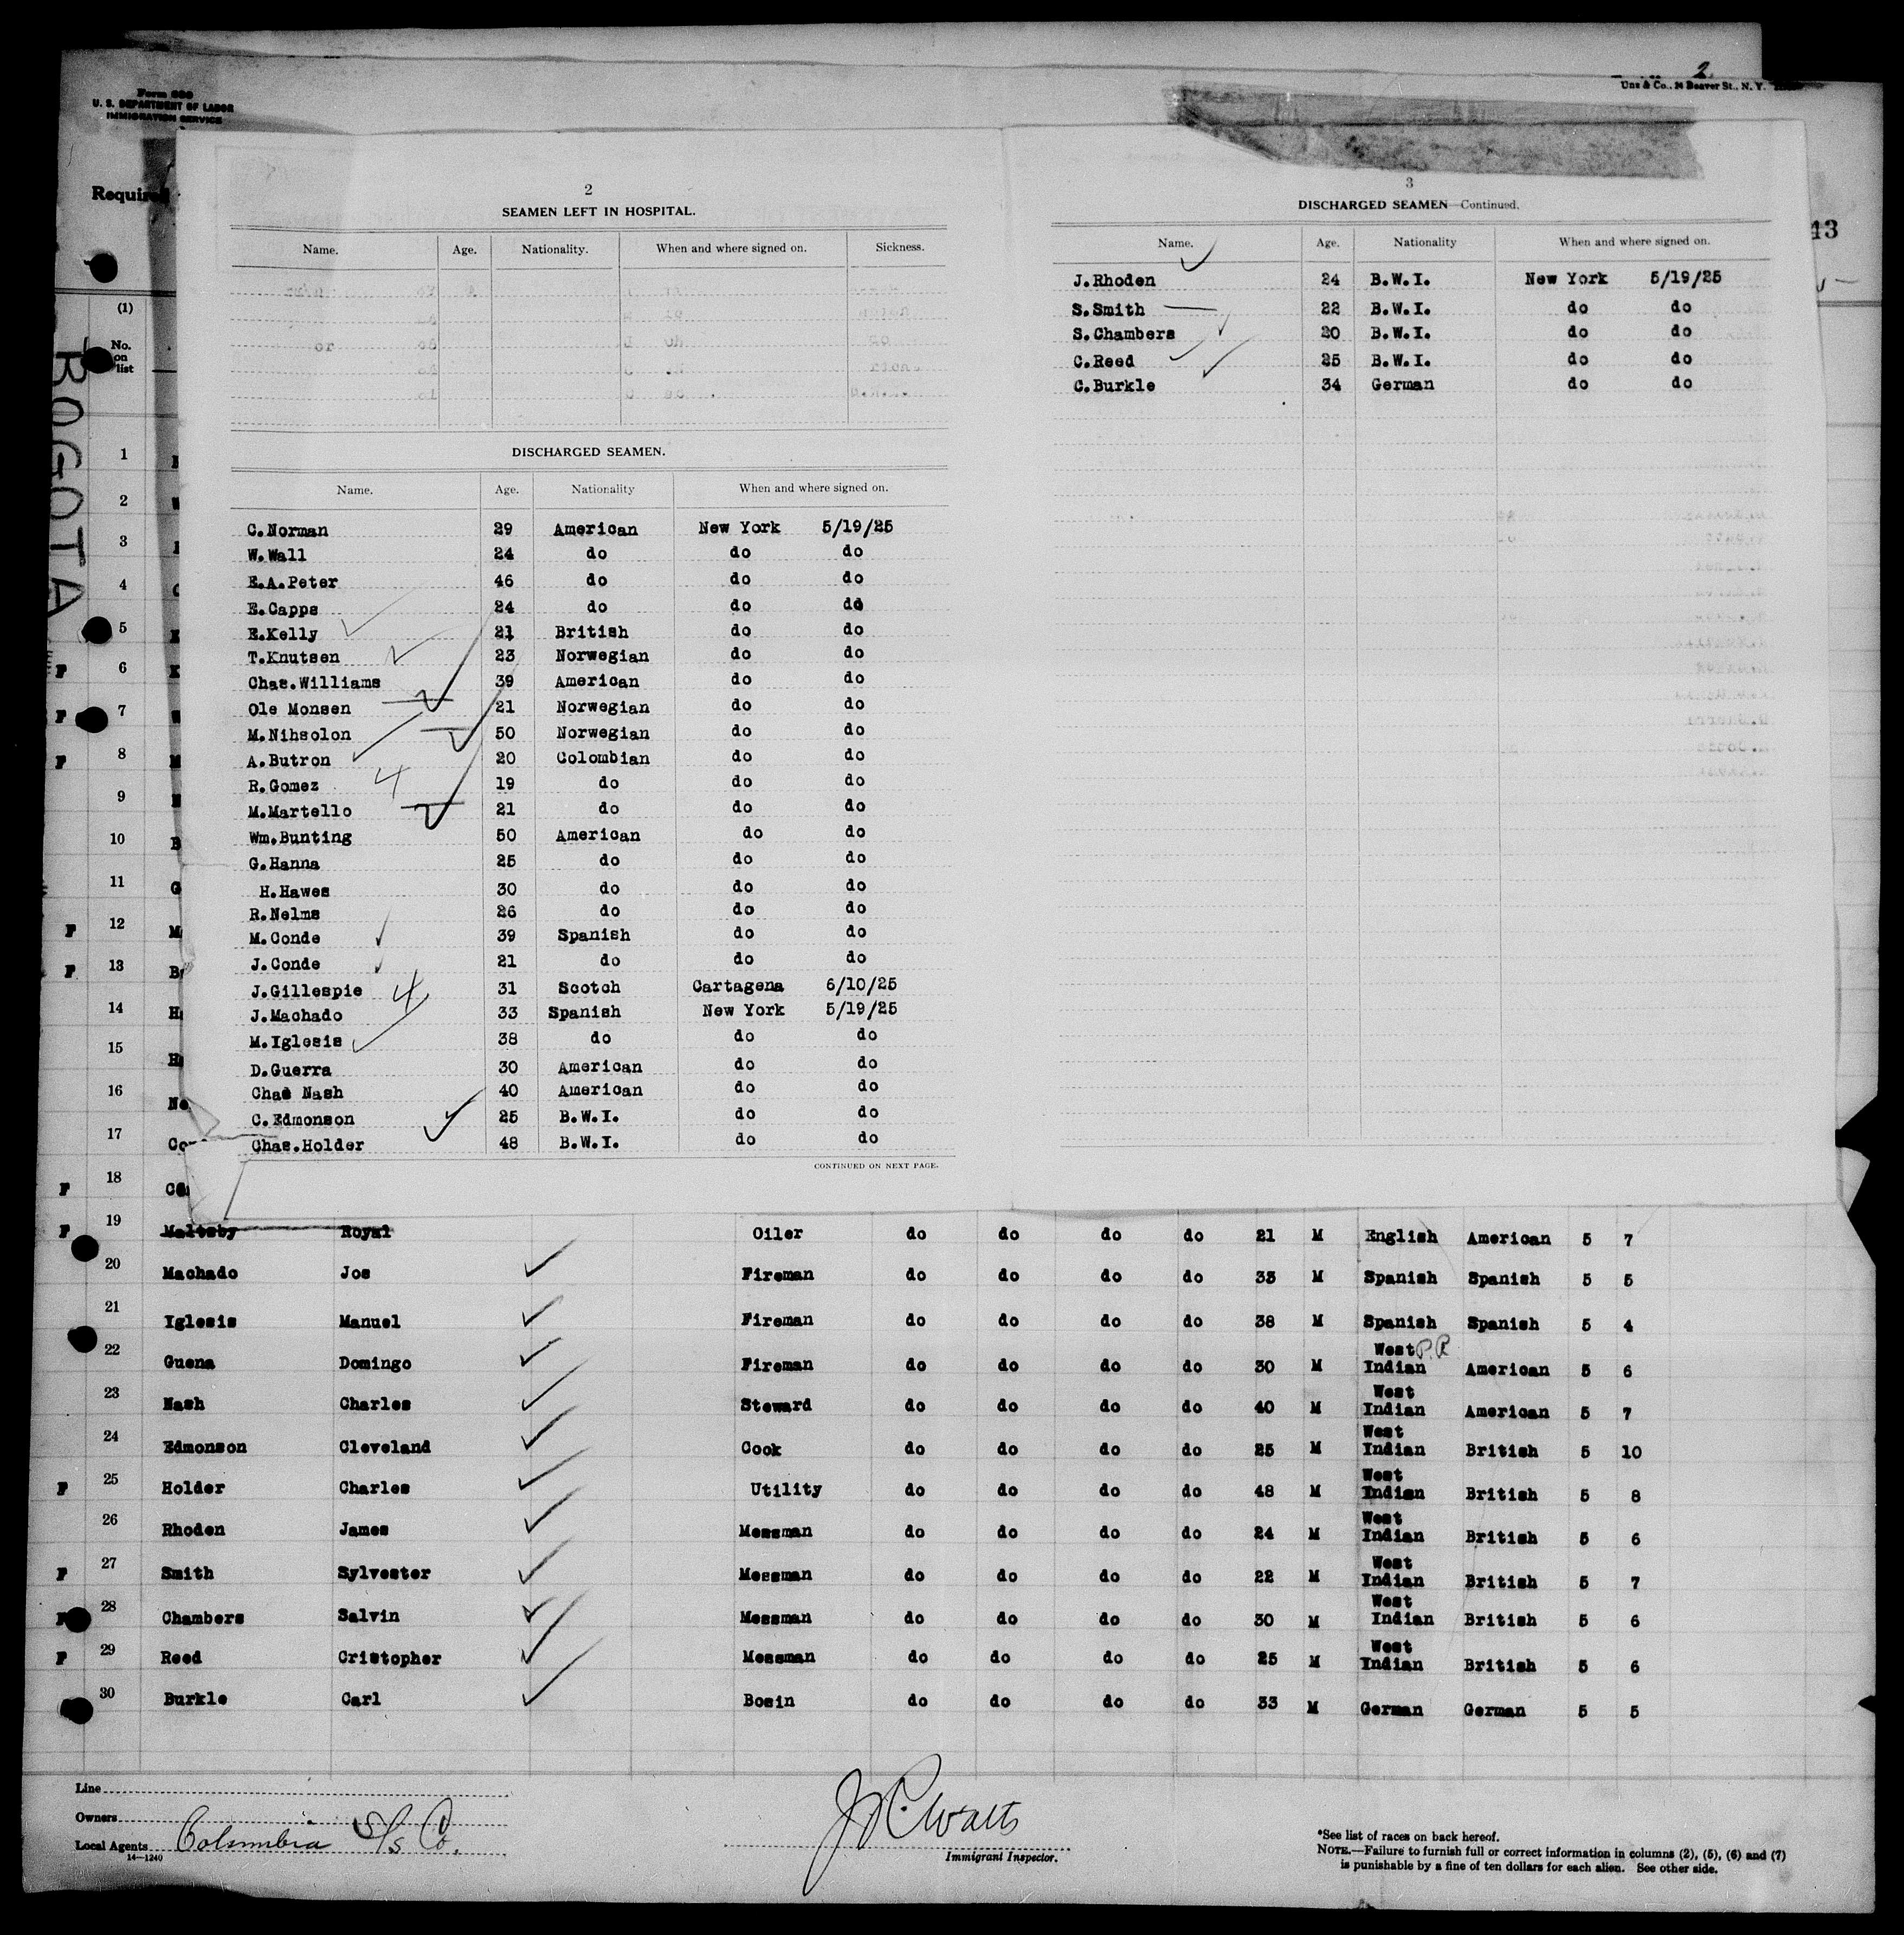 2
Unz & Co., 24 Beaver St., N. Y.
Form 680
U. S. DEPARTMENT OF LABOR
IMMIGRATION SERVICE
Required
13
(1)
No. on list
BOGOTA
2
SEAMEN LEFT IN HOSPITAL.
Name. Age. Nationality. When and where signed on. Sickness.
DISCHARGED SEAMEN.
Name. Age. Nationality When and where signed on.
C.Norman 29 American New York 5/19/25
W.Wall 24 do do do
E.A.Peter 46 do do do
E.Capps 24 do do do
E.Kelly 21 British do do
T.Knutsen 23 Norwegian do do
Chas.Williams 39 American do do
Ole Monsen 21 Norwegian do do
M.Nihsolon 50 Norwegian do do
A.Butron 20 Colombian do do
R.Gomez 4 19 do do do
M.Martello 21 do do do
Wm.Bunting 50 American do do
G.Hanna 25 do do do
H.Hawes 30 do do do
R.Nelms 26 do do do
M.Conde 39 Spanish do do
J.Conde 21 do do do
J.Gillespie 4 31 Scotch Cartagena 6/10/25
J.Machado 33 Spanish New York 5/19/25
M.Iglesis 38 do do do
D.Guerra 30 American do do
Chas Nash 40 American do do
C.Edmonson 25 B.W.I. do do
Chas.Holder 48 B.W.I. do do
CONTINUED ON NEXT PAGE.
3
DISCHARGED SEAMEN—Continued.
Name. Age. Nationality When and where signed on.
J.Rhoden 24 B.W.I. New York 5/19/25
S.Smith 22 B.W.I. do do
S.Chambers 20 B.W.I. do do
C.Reed 25 B.W.I. do do
C.Burkle 34 German do do
1
2 W
3
4 C
5
F 6
F 7 W
F 8 M
9
10 B
11 G
F 12 M
F 13 B
14 H
15 H
16 Ne
17 Co
F 18
F 19 Maltsby Royal Oiler do do do do 21 M English American 5 7
20 Machado Jos Fireman do do do do 33 M Spanish Spanish 5 5
21 Iglesis Manuel Fireman do do do do 38 M Spanish Spanish 5 4
22 Guena Domingo Fireman do do do do 30 M West Indian P.R American 5 6
23 Nash Charles Steward do do do do 40 M West Indian American 5 7
24 Edmonson Cleveland Cook do do do do 25 M West Indian British 5 10
F 25 Holder Charles Utility do do do do 48 M West Indian British 5 8
26 Rhoden James Messman do do do do 24 M West Indian British 5 6
F 27 Smith Sylvester Messman do do do do 22 M West Indian British 5 7
F 28 Chambers Salvin Messman do do do do 30 M West Indian British 5 6
F 29 Reed Cristopher Messman do do do do 25 M West Indian British 5 6
30 Burkle Carl Bosin do do do do 33 M German German 5 5
Line
Owners
Local Agents Columbia S/S Co.
14—1240
Immigrant Inspector.
*See list of races on back hereof.
NOTE.—Failure to furnish full or correct information in columns (2), (5), (6) and (7)
is punishable by a fine of ten dollars for each alien. See other side.